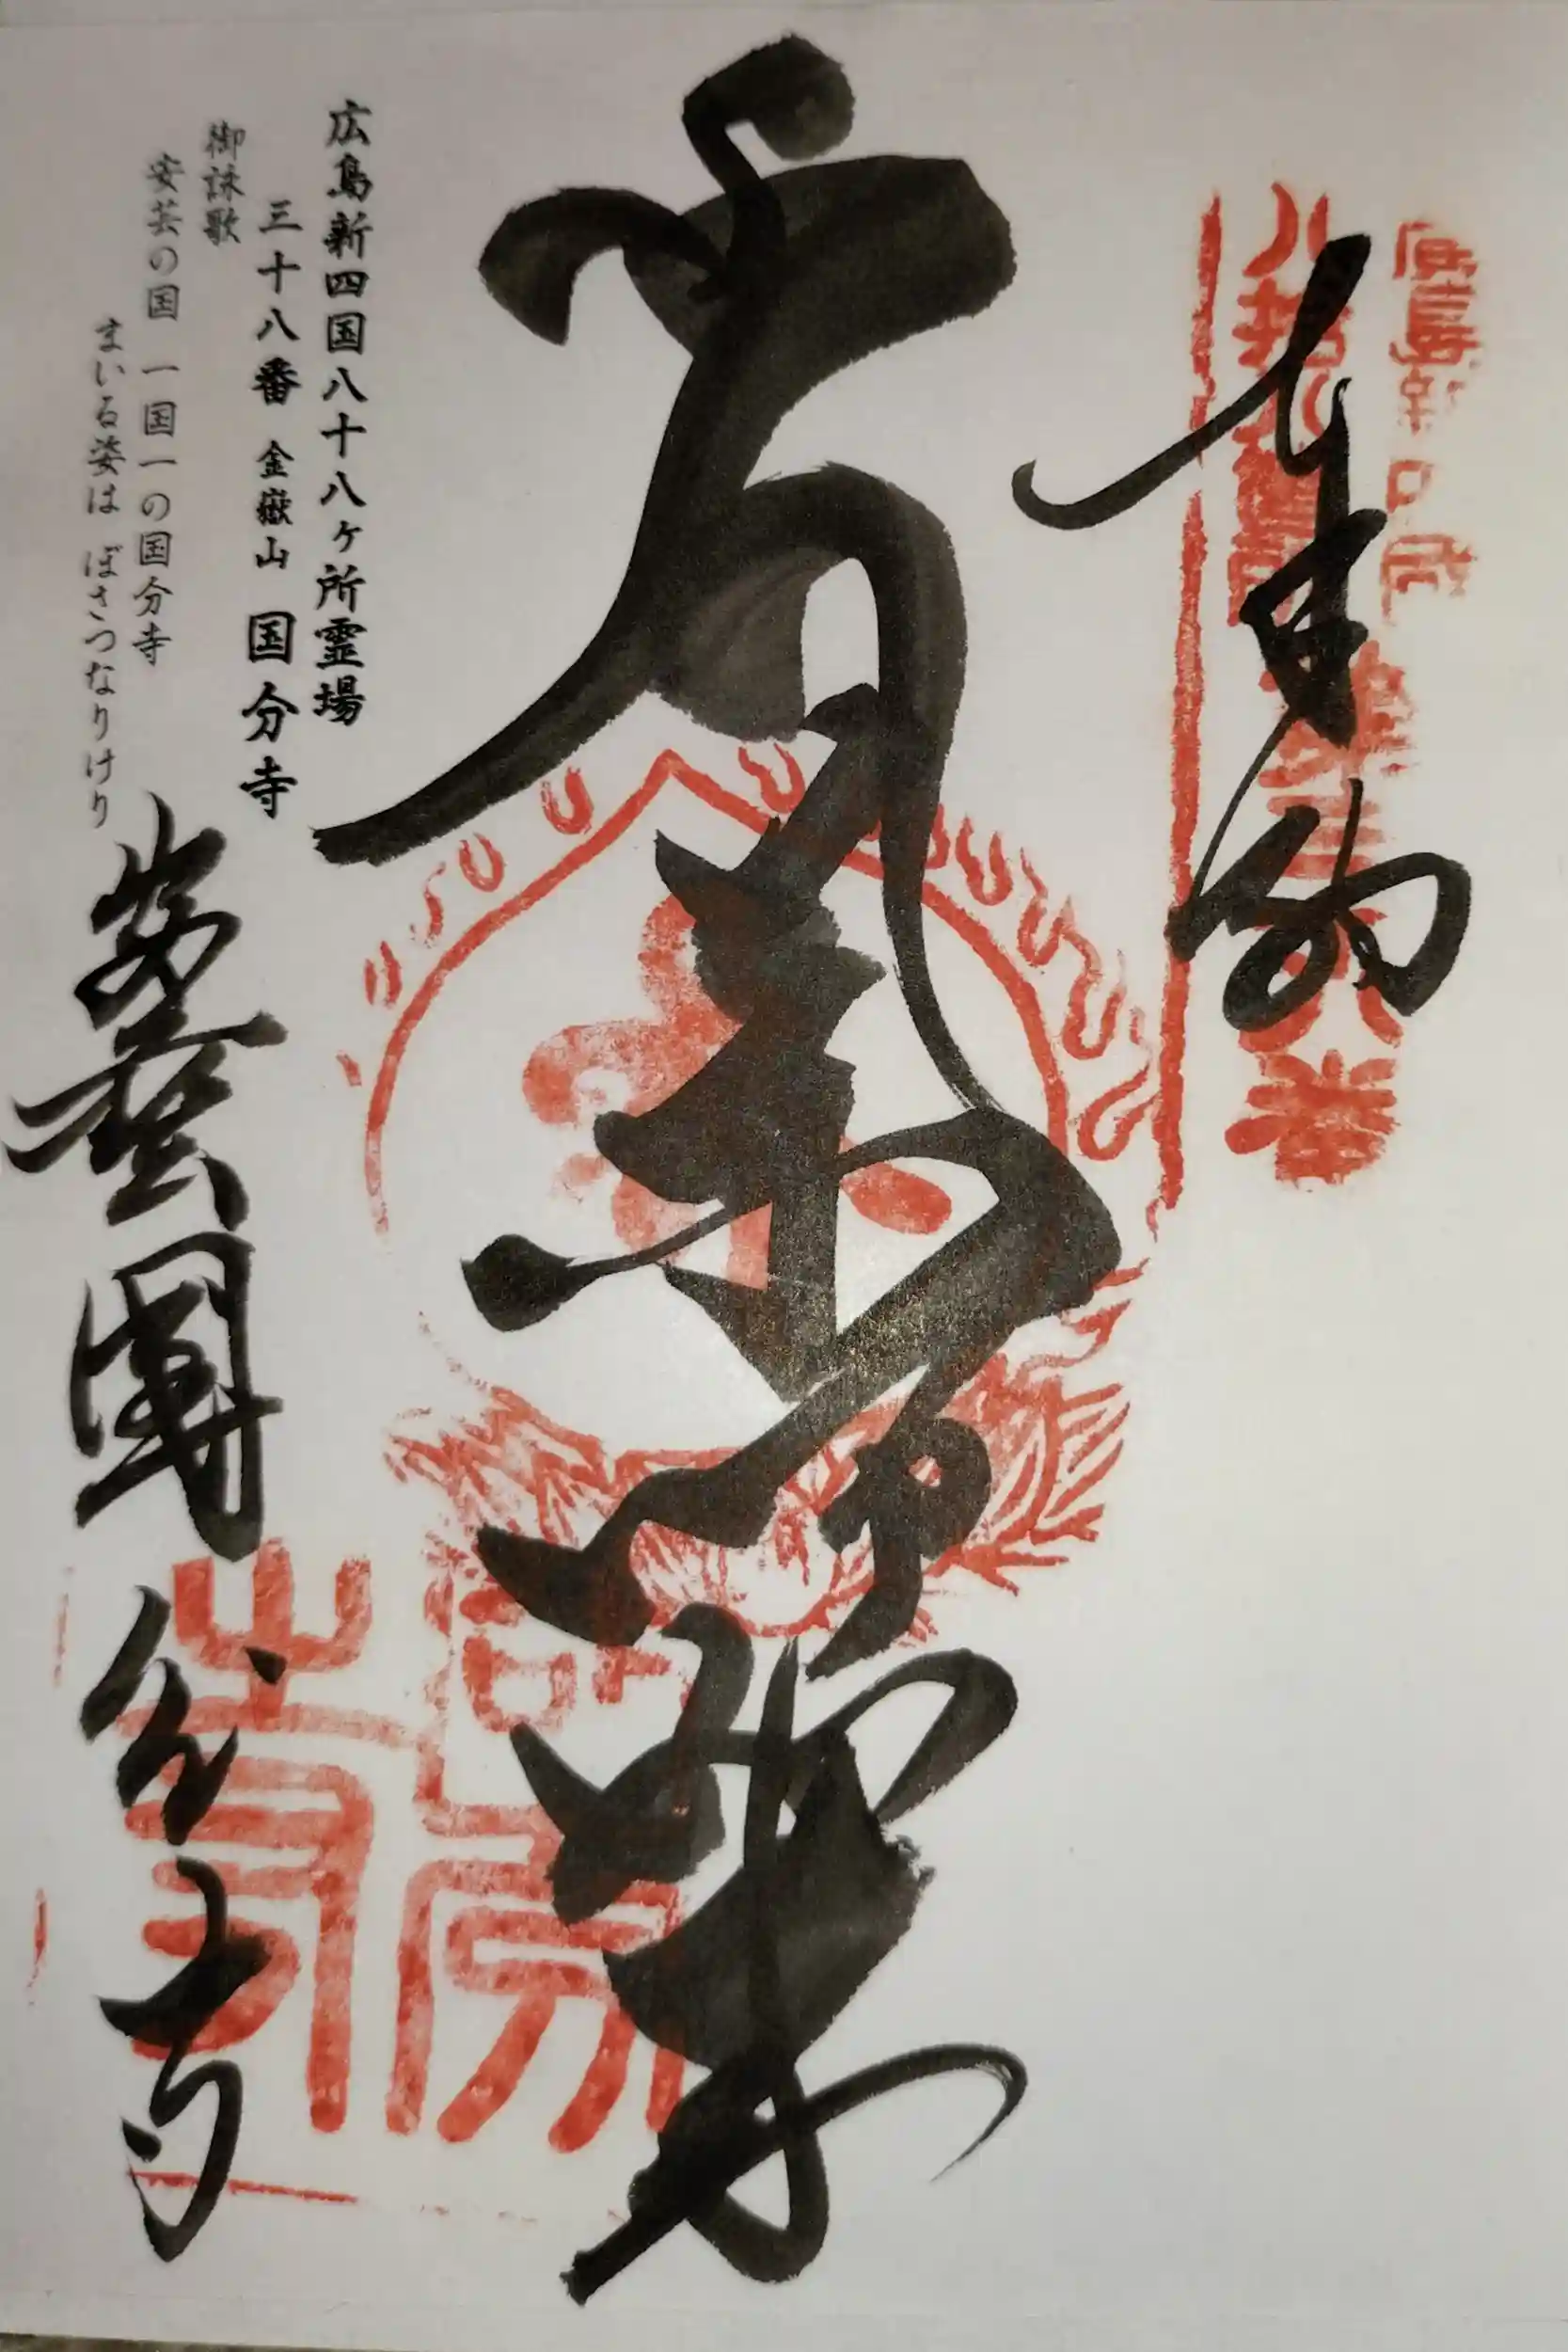 奉納
廣島新四国
第三十八番
薬師如来
広島新四国八十八ヶ所霊場
三十八番 金嶽山 国分寺
御詠歌
安芸の国 一国一の国分寺
まいる姿は ぼさつなりけり
安藝國分寺